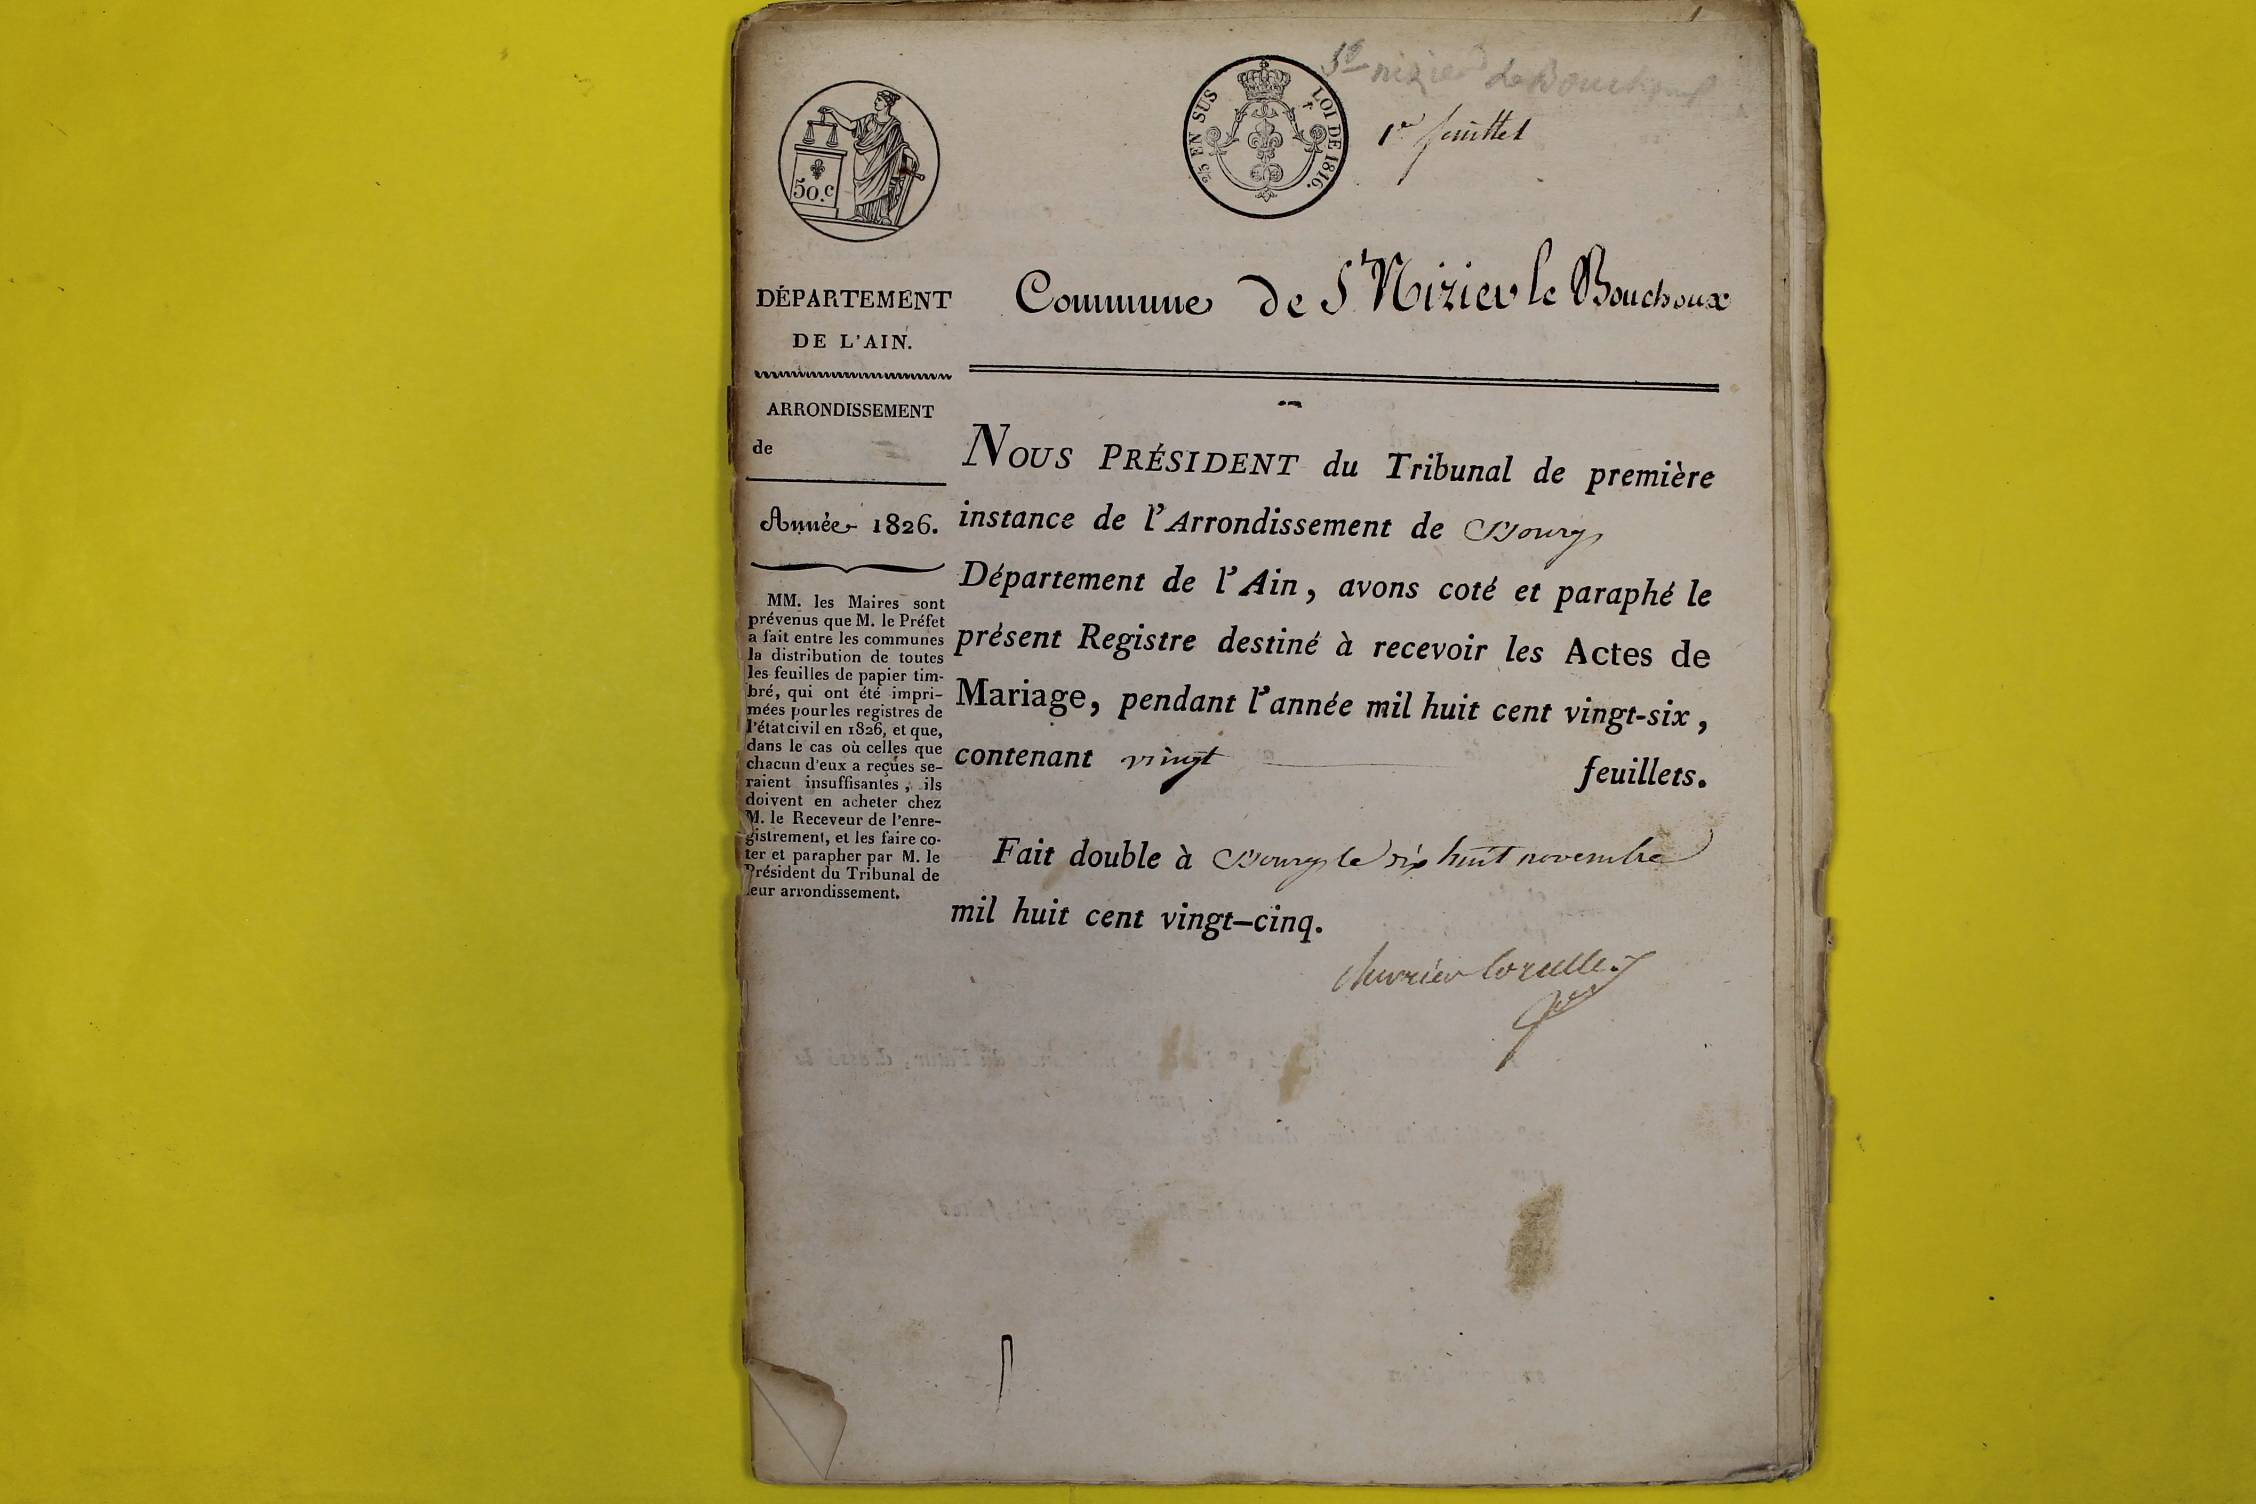 1
St nizier Le Bouchoux
50.c
2/5 EN SUS
LOI DE 1816.
1er feuillet
DÉPARTEMENT
DE L'AIN.
Commune de St Nizier le Bouchoux
ARRONDISSEMENT
de
Année 1826.
MM. les Maires sont
prévenus que M. le Préfet
a fait entre les communes
la distribution de toutes
les feuilles de papier tim-
bré, qui ont été impri-
mées pour les registres de
l'état civil en 1826, et que,
dans le cas où celles que
chacun d'eux a reçues se-
raient insuffisantes, ils
doivent en acheter chez
M. le Receveur de l'enre-
gistrement, et les faire co-
ter et parapher par M. le
Président du Tribunal de
leur arrondissement.
NOUS PRÉSIDENT du Tribunal de première
instance de l'Arrondissement de Bourg
Département de l'Ain, avons coté et paraphé le
présent Registre destiné à recevoir les Actes de
Mariage, pendant l'année mil huit cent vingt-six,
contenant vingt feuillets.
Fait double à Bourg le dix huit novembre
mil huit cent vingt-cinq.